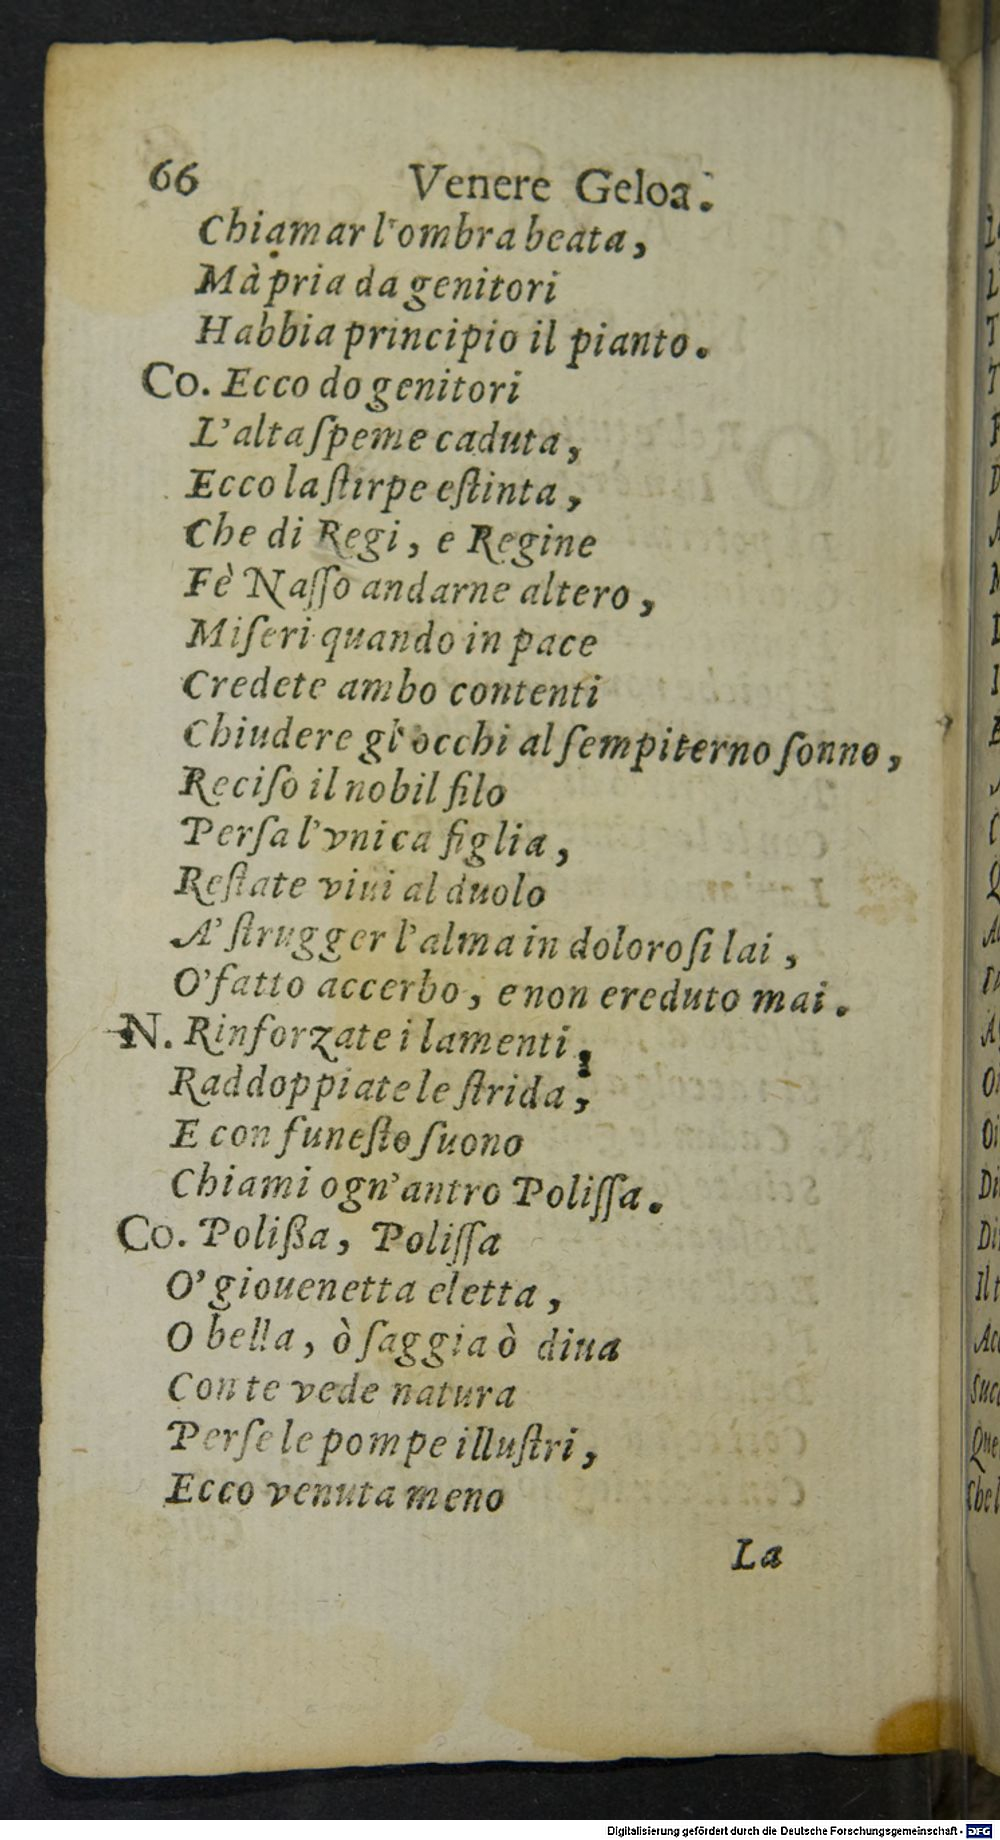 66 Venere Geloa.
Chiamar l'ombra beata,
Mà pria da genitori
Habbia principio il pianto.
Co. Ecco do genitori
L'alta ſpeme caduta,
Ecco la ſtirpe eſtinta,
Che di Regi, e Regine
Fè Naſſo andarne altero,
Miſeri quando in pace
Credete ambo contenti
Chiudere gl'occhi al ſempiterno ſonno,
Reciſo il nobil filo
Perſa l'vnica figlia,
Reſtate viui al duolo
A' ſtrugger l'alma in doloroſi lai,
O' fatto accerbo, e non ereduto mai.
N. Rinforzate i lamenti,
Raddoppiate le ſtrida,
E con funeſto ſuono
Chiami ogn'antro Poliſſa.
Co. Polißa, Poliſſa
O' giouenetta eletta,
O bella, ò ſaggia ò diua
Con te vede natura
Perſe le pompe illuſtri,
Ecco venuta meno
La
Digitalisierung gefördert durch die Deutsche Forschungsgemeinschaft - DFG